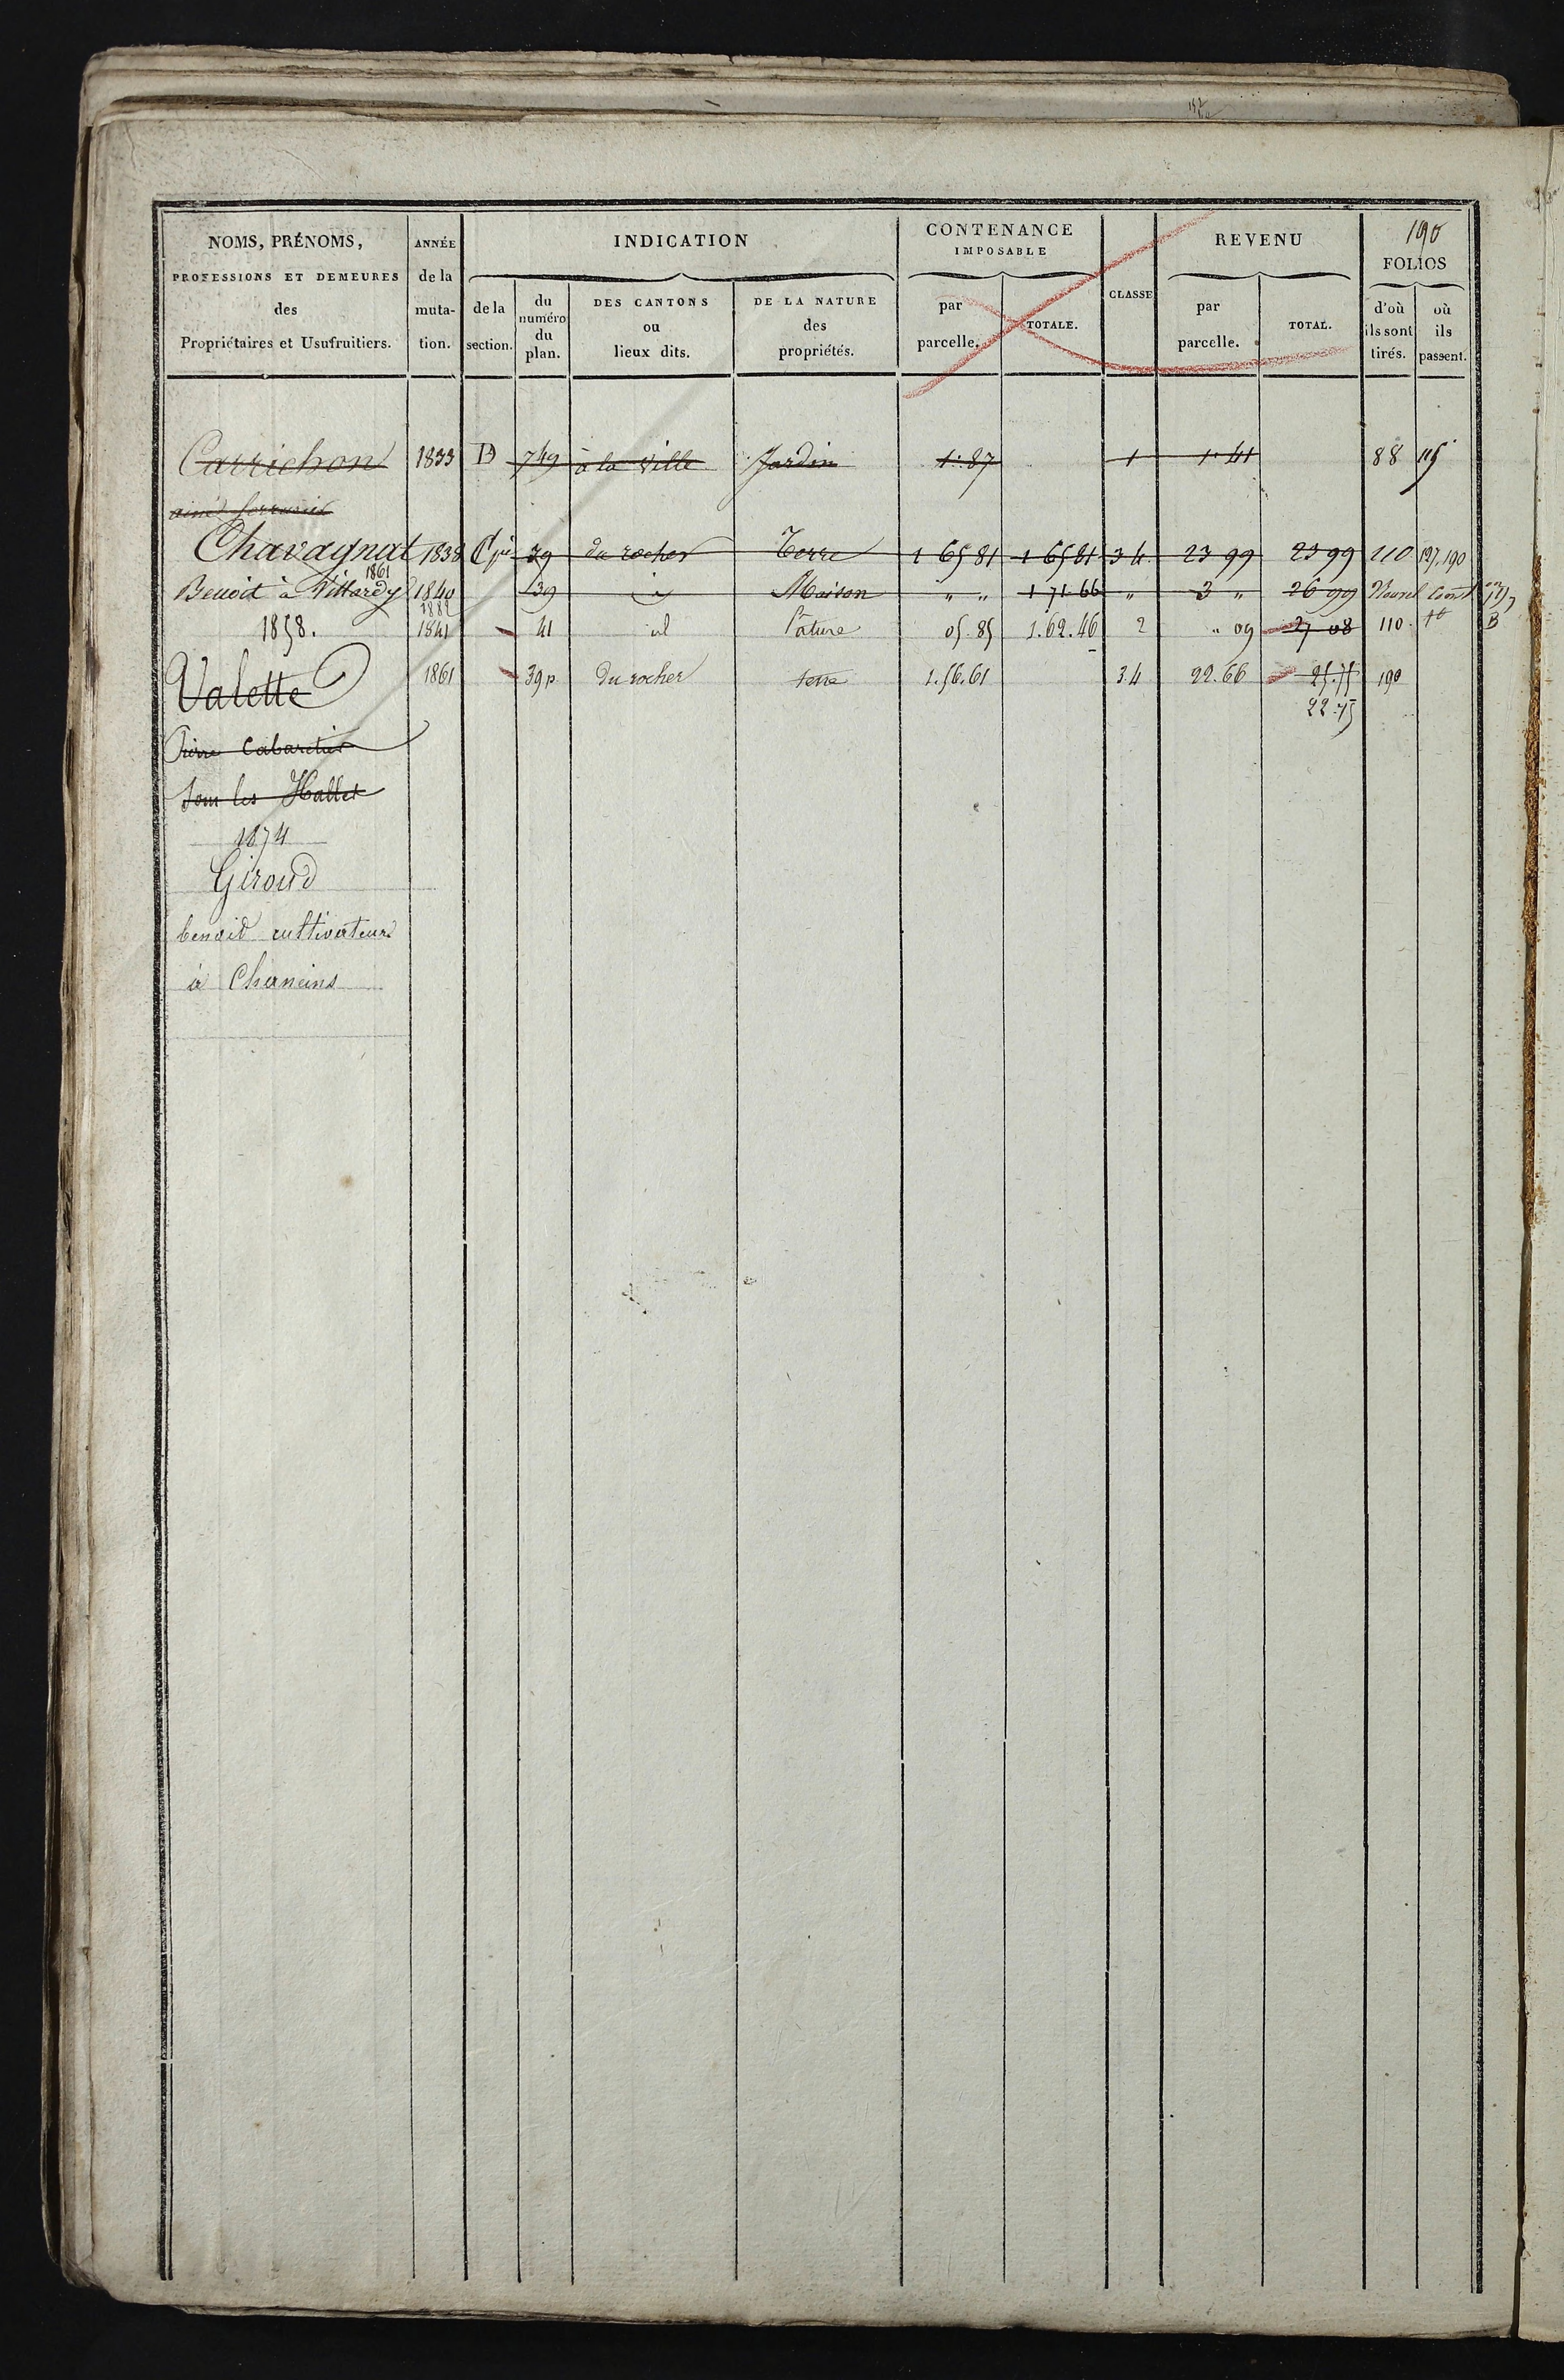 190
NOMS, PRÉNOMS, PROFESSIONS ET DEMEURES des Propriétaires et Usufruitiers.
ANNÉE de la muta- tion.
INDICATION
de la section.
du numéro du plan.
DES CANTONS ou lieux dits.
DE LA NATURE des propriétés.
CONTENANCE IMPOSABLE
par parcelle.
TOTALE.
CLASSE
REVENU
par parcelle.
TOTAL.
FOLIOS
d'où ils sont tirés.
où ils passent.
Carrichon 1833 D 749 à la ville Jardin 1.87 1 1.41 88 115
ainé serrurier
Chavagnat 1838 C 39 du rocher Terre 1 65 81 1 65 81 3 4 23 99 23 99 110 127.190
1861
Benoit à Villardy 1840 39 Maison " " 1 71 66 " 3 " 26 99 Nouvel
1882
1858. 1841 41 id Pâture 05.85 1.62.46 2 " 09 27 08 110.
Valette 1861 39p du rocher terre 1.56.61 3.4 22.66 25.75 190
22.75
Pierre Cabaretier
sous les Halles
1874
Giroud
benoid cultivateur
à Chaneins